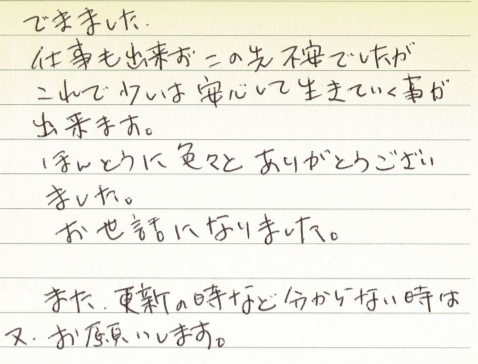 できました.
仕事も出来ずこの先不安でしたが
これで少しは安心して生きていく事が
出来ます。
ほんとうに色々とありがとうござい
ました。
お世話になりました。
また、更新の時など分からない時は
又、お願いします。